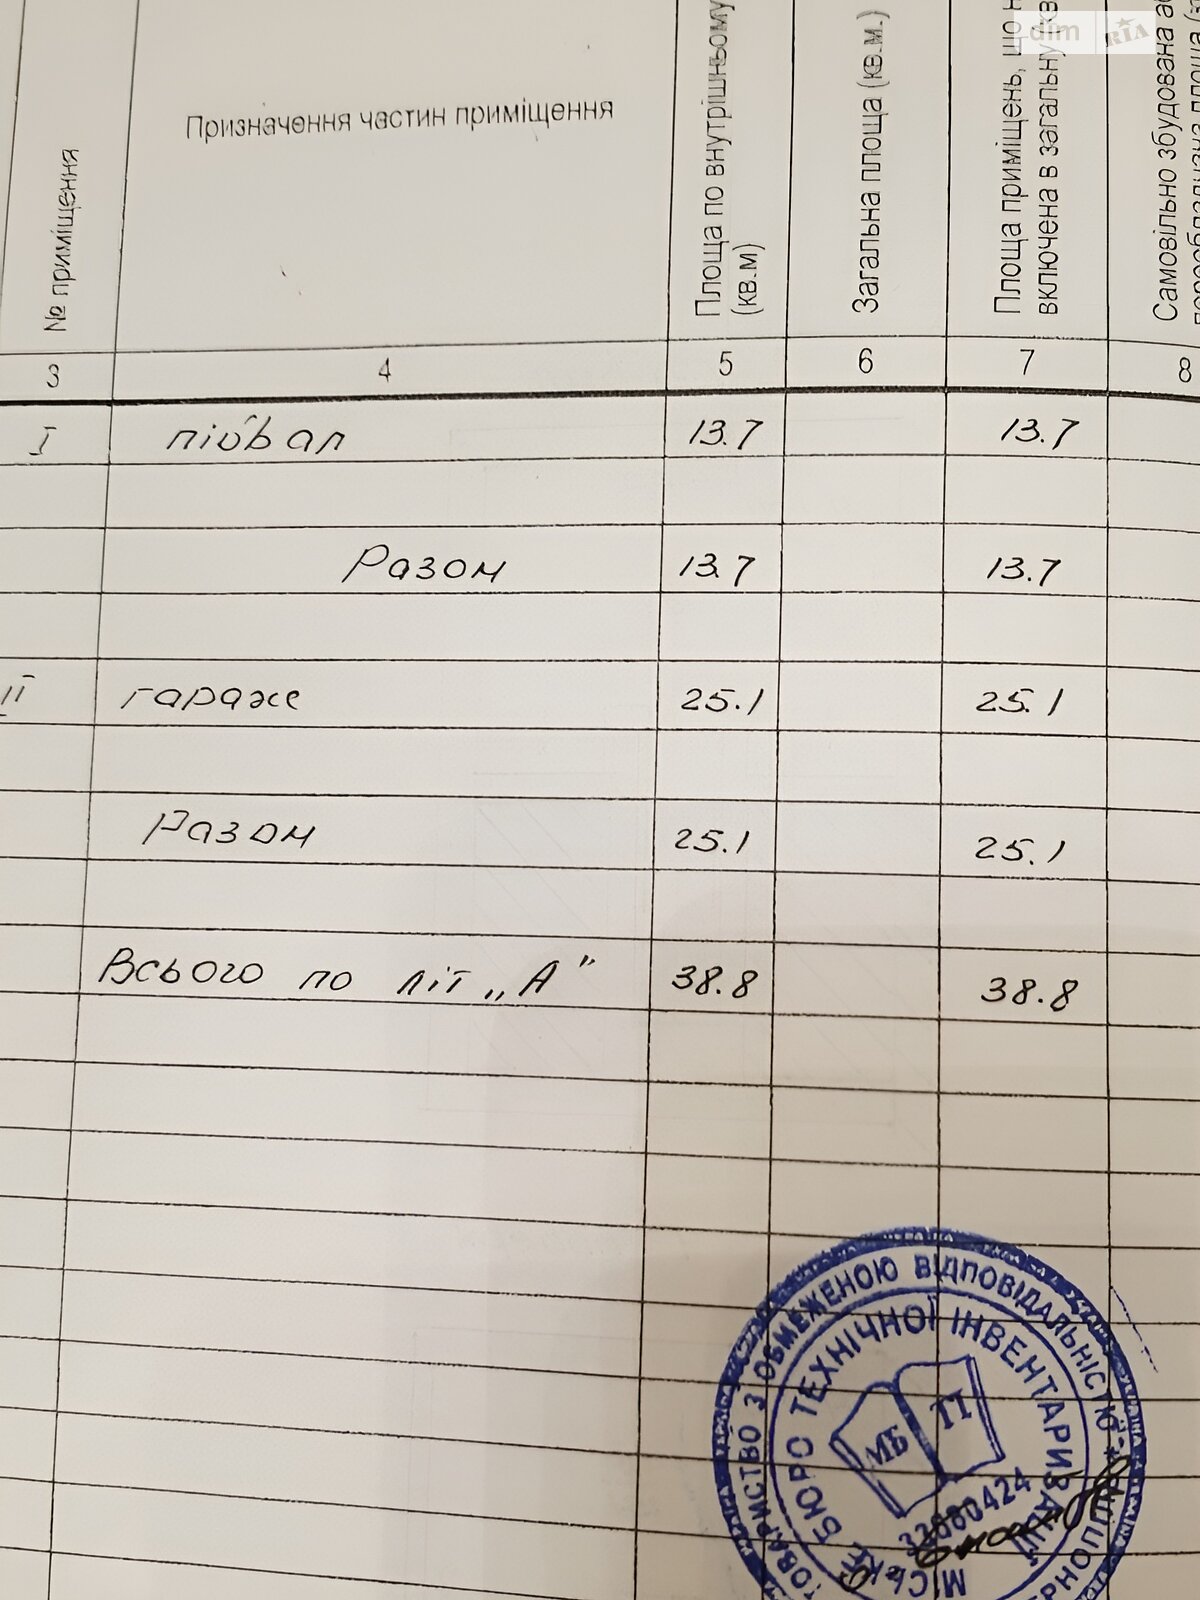 dim RIA
№ приміщення
Призначення частин приміщення
Площа по внутрішньому
(кв.м)
Загальна площа (кв.м.)
Площа приміщень, що н
включена в загальну кв
Самовільно збудована
площа
3 4 5 6 7 8
I підвал 13.7 13.7
Разом 13.7 13.7
II гараже 25.1 25.1
Разом 25.1 25.1
Всього по літ „А" 38.8 38.8
ТОВАРИСТВО З ОБМЕЖЕНОЮ ВІДПОВІДАЛЬНІСТЮ
МІСЬКЕ БЮРО ТЕХНІЧНОЇ ІНВЕНТАРИЗАЦІЇ
МБ ТІ